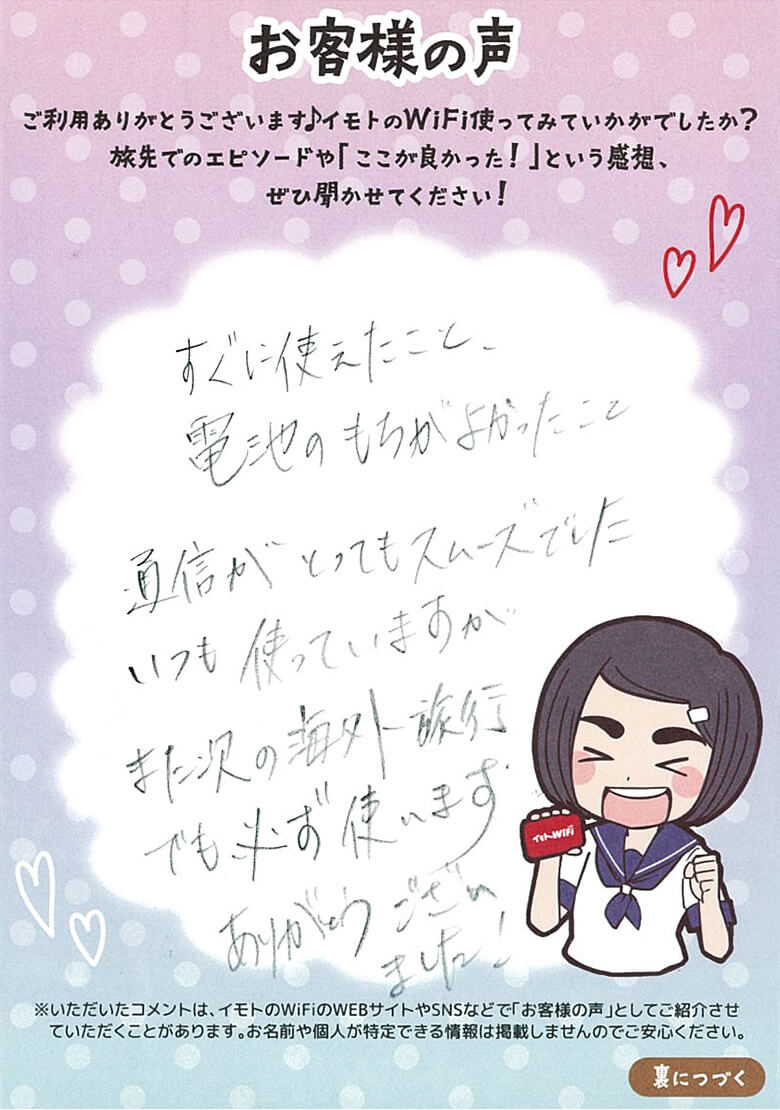 お客様の声
ご利用ありがとうございます♪イモトのWiFi使ってみていかがでしたか?
旅先でのエピソードや「ここが良かった!」という感想、
ぜひ聞かせてください!
すぐに使えたこと、
電池のもちがよかったこと
通信がとってもスムーズでした
いつも使っていますが
また次の海外旅行
でも必ず使います
ありがとうござい
ました!
イモトのWiFi
※いただいたコメントは、イモトのWiFiのWEBサイトやSNSなどで「お客様の声」としてご紹介させ
ていただくことがあります。お名前や個人が特定できる情報は掲載しませんのでご安心ください。
裏につづく